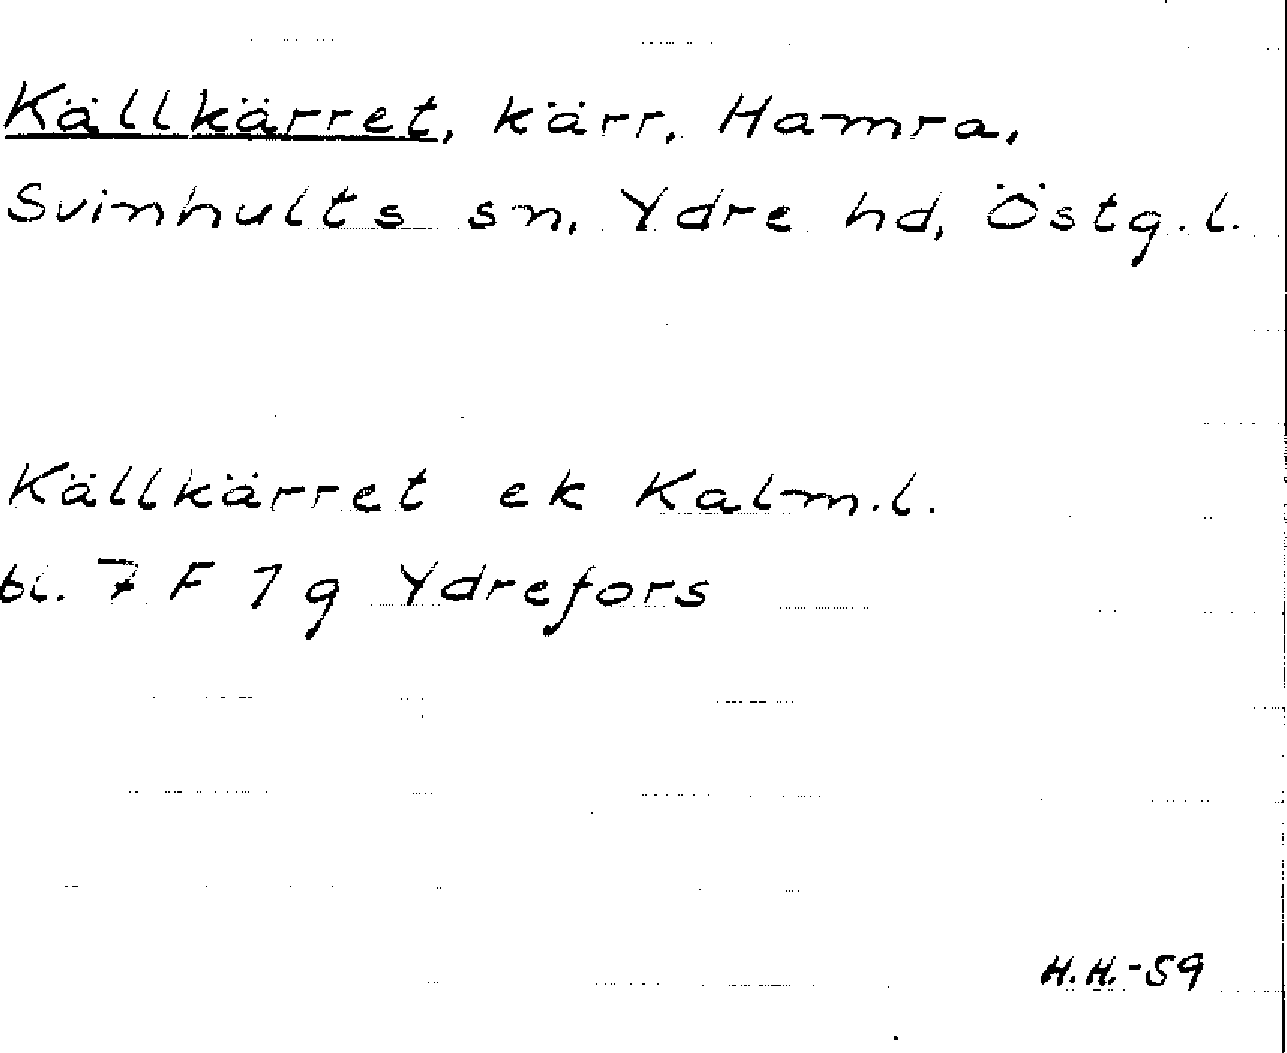 Källkärret, kärr, Hamra,
Svinhults sn, Ydre hd, Östg. l.
Källkärret ek Kalm. l.
bl. 7 F 1 g Ydrefors
H.H.-59